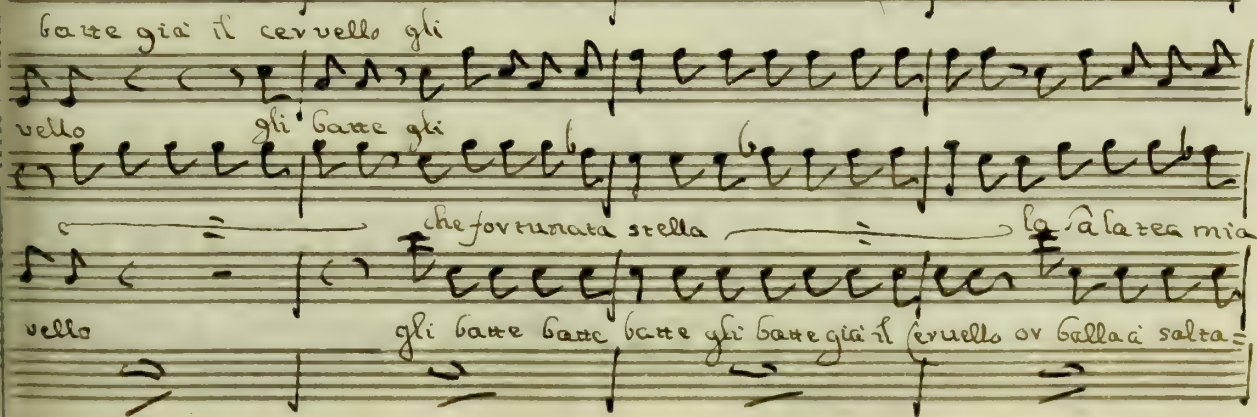 batte già il cervello gli
vello gli batte gli
che fortunata stella la Galatea mia
vello gli batte batte batte gli batte già il cervello or balla a salta=